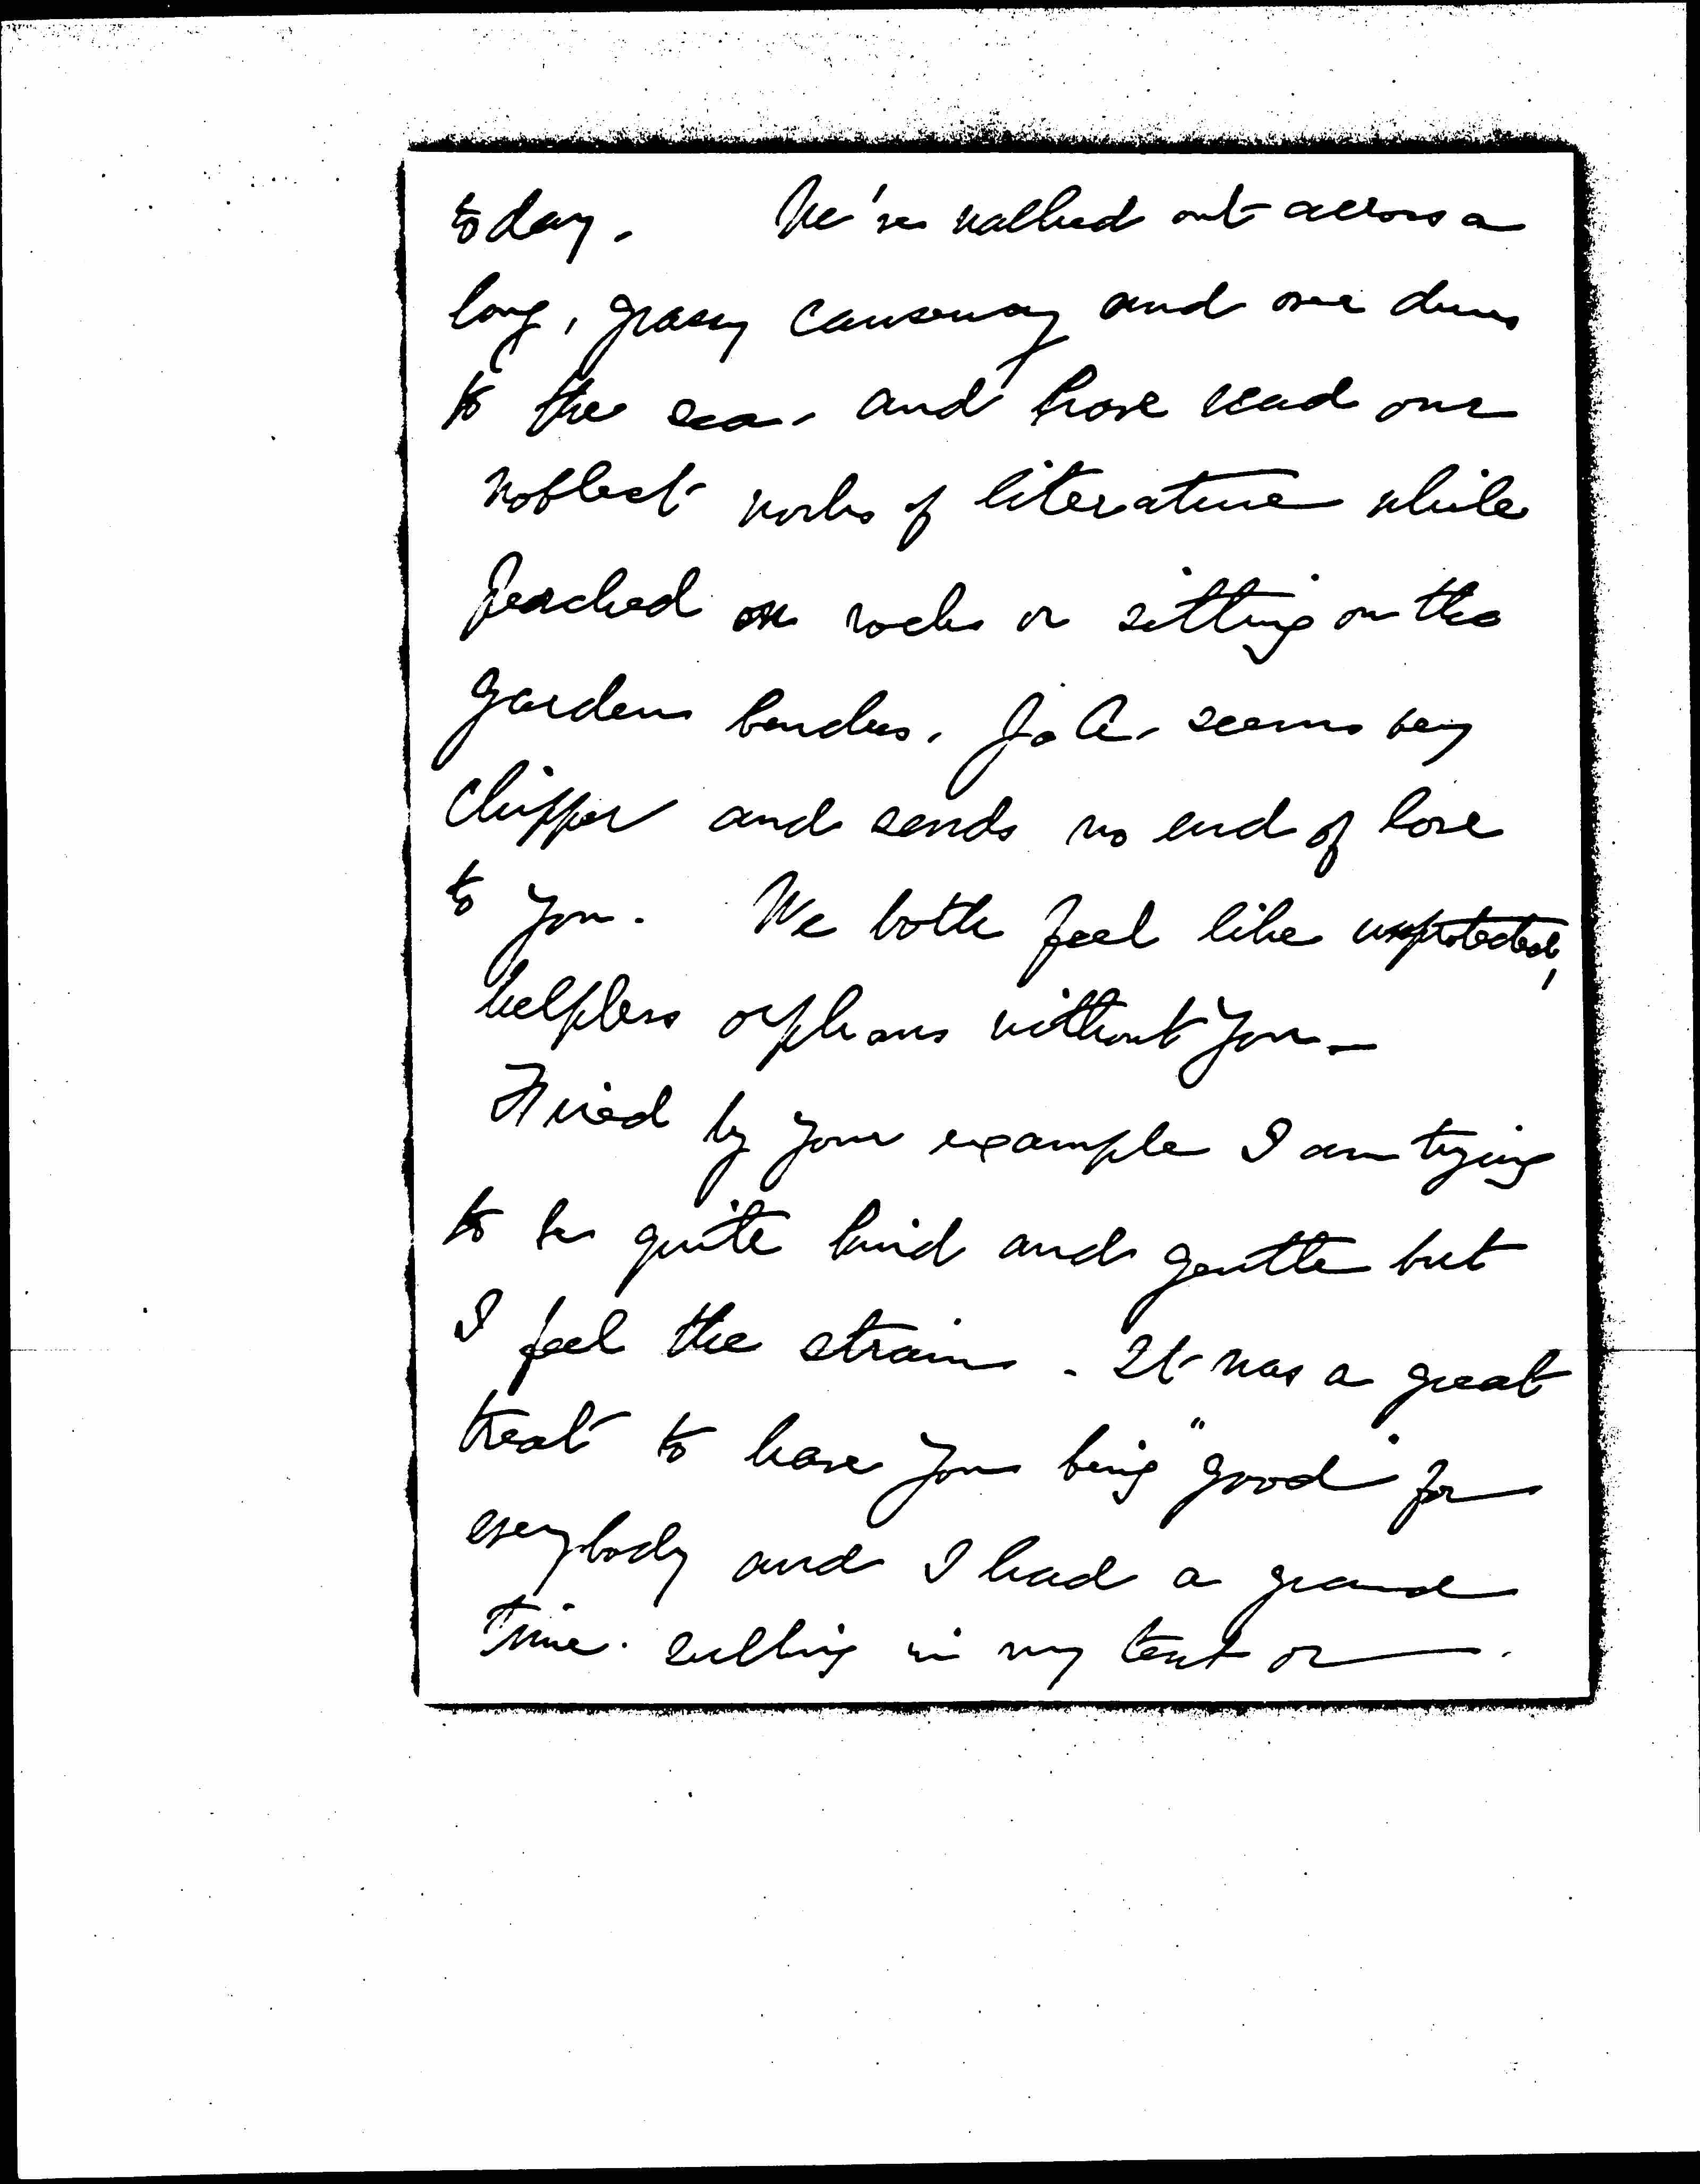 today. We've walked out across a
long, grassy causeway and over dunes
to the sea, and have read our
noblest works of literature while
perched on rocks or sitting on the
garden benches. J.A. seems very
chipper and sends no end of love
to you. We both feel like unprotected,
helpless orphans without you –
Fired by your example I am trying
to be quite kind and gentle but
I feel the strain. It was a great
treat to have you being "good" for
everybody and I had a grand
time. sulking in my tent or